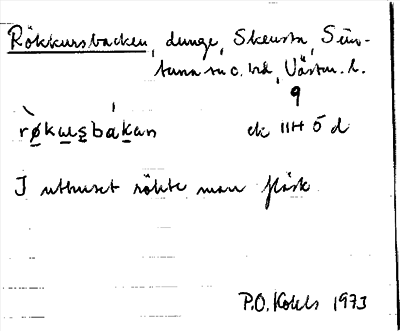 Rökkursbacken, dunge, Skensta, Sim-
tuna sn o. hd, Västm. l.
9
røkusbakan ek 11H 5 d
I uthuset rökte man fläsk.
P.O. Kohls 1973